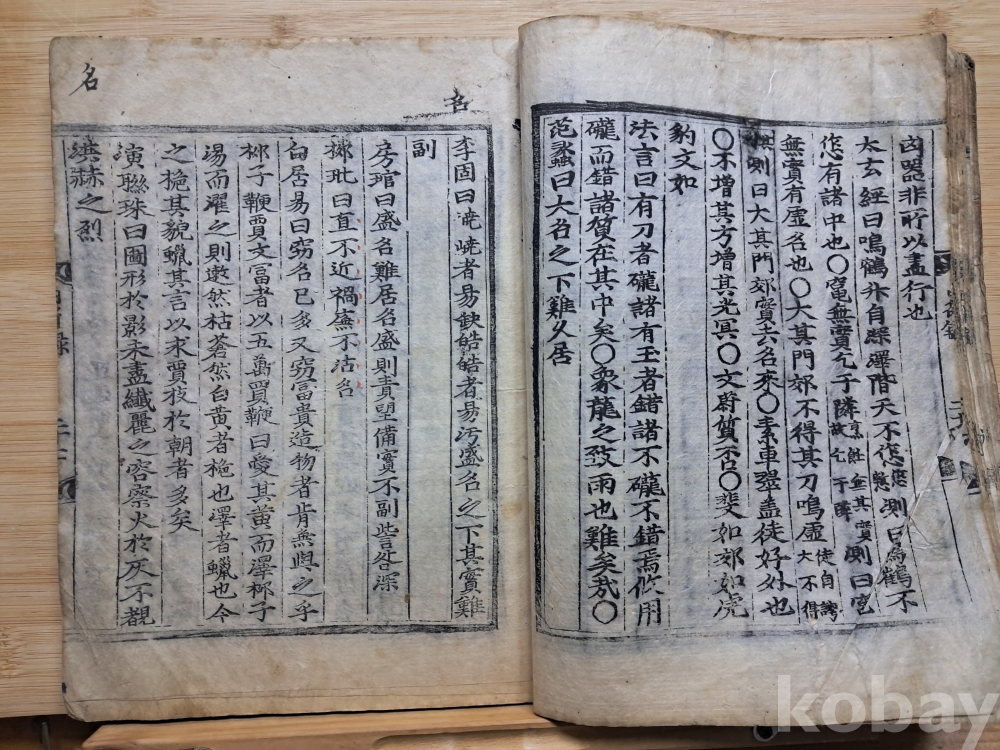 凶器非所以盡行也
太玄經曰鳴鶴升自深澤階天不㤰測曰鳴鶴不
㤰有諸中也〇竈無實乞于隣測曰竈
無實有虛名也〇大其門郊不得其刀鳴虛
測曰大其門郊實去名來〇素車翠蓋徒好外也
〇不增其方增其光冥〇文蔚質否〇斐如邠如虎
豹文如
法言曰有刀者礲諸有玉者錯諸不礲不錯焉攸用
礲而錯諸質在其中矣〇象龍之致雨也難矣哉〇
范蠡曰大名之下難久居
名
名
李固曰嶢嶢者易缺皓皓者易汚盛名之下其實難
副
房琯曰盛名難居名盛則責望備實不副訾咎深
曰直不近禍廉不沽名
白居易曰窃名已多又窃富貴造物者肯無與之乎
柳子鞭賈文富者以五萬買鞭曰愛其黄而澤柳子
湯而濯之則遬然枯蒼然白黄者梔也澤者蠟也今
之梔其貌蠟其言以求賈技於朝者多矣
演聯珠曰圖形於影未盡纖麗之容察火於灰不覩
洪赫之烈
kobay